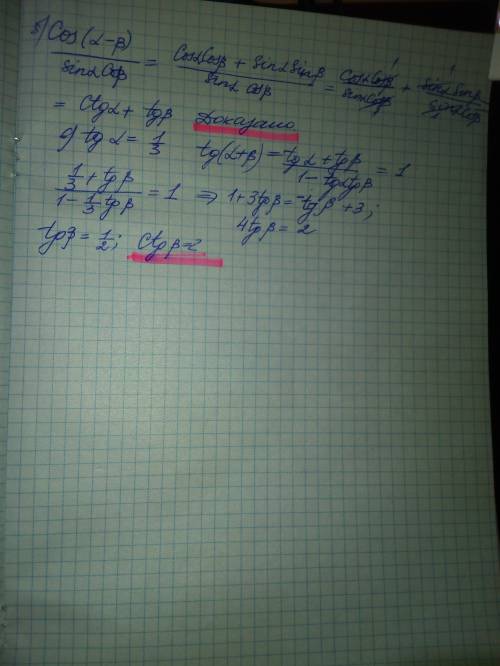 8) Cos(α-β)/sinα Cosβ = Cosα Cosβ + sinα sinβ/sinα cosβ = Cosα Cosβ/sinα cosβ + sinα sinβ/sinα cosβ
= Ctgα + tgβ Доказано
9 tgα = 1/3 tg(α+β) = tgα + tgβ/1 - tgα tgβ = 1
1/3 + tgβ/1 - 1/3 tgβ = 1 ⇒ 1 + 3tgβ = -tgβ + 3;
4tgβ = 2
tgβ = 1/2; Ctgβ = 2